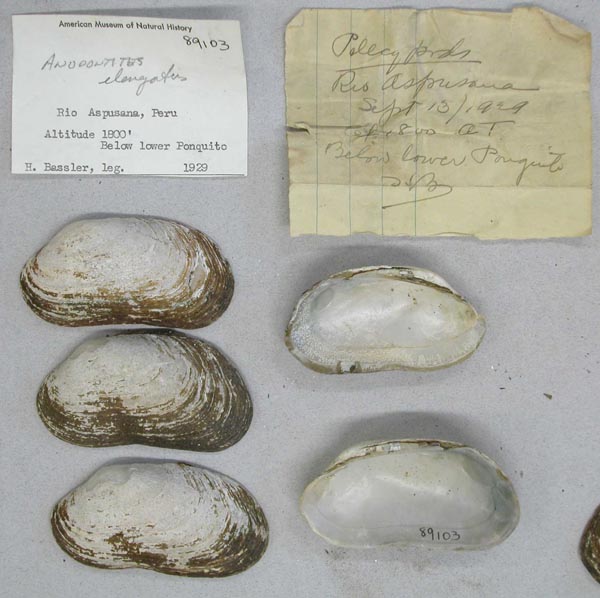 American Museum of Natural History
89103
ANODONTITES
elongatus
Rio Aspusana, Peru
Altitude 1800'
Below lower Ponquito
H. Bassler, leg. 1929
Pelecypods
Rio Aspusana
Sept 13/1929
1800 AT
Below lower Ponquito
89103